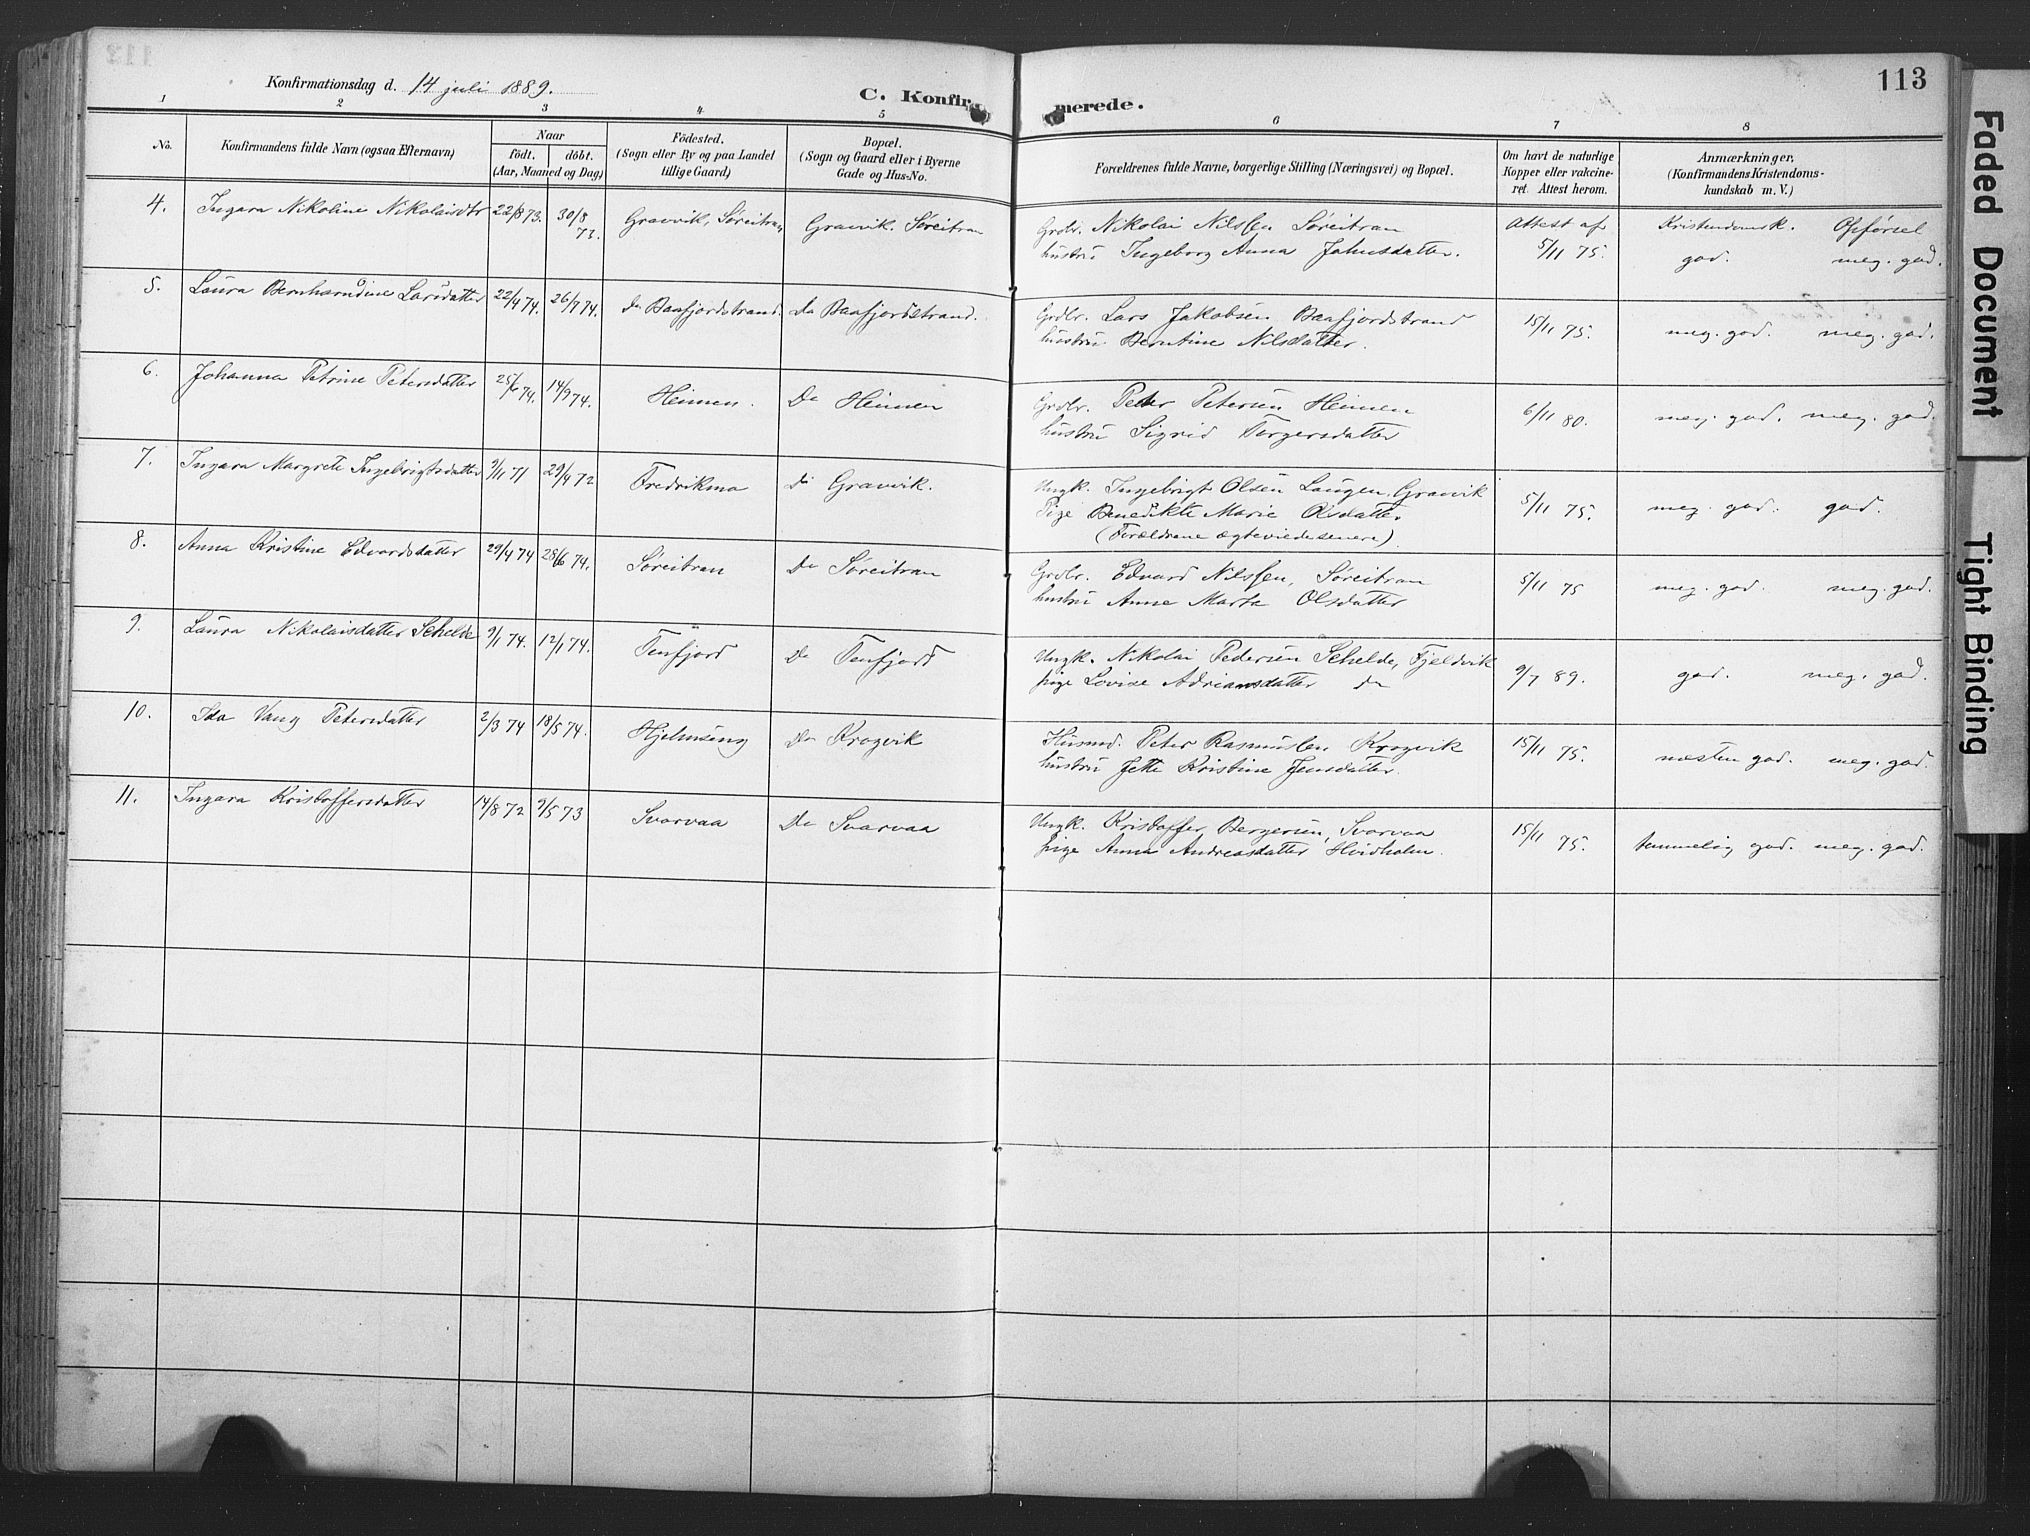 Konfirmationsdag d. 14 juli 1889.
C. Konfirmerede.
113
1 2 3 4 5 6 7 8
No. Konfirmandens fulde Navn (ogsaa Efternavn) Naar födt. döbt. (Aar, Maaned og Dag) Födested. (Sogn eller By og paa Landet tillige Gaard) Bopæl. (Sogn og Gaard eller i Byerne Gade og Hus-No. Forældrenes fulde Navne, borgerlige Stilling (Næringsvei) og Bopæl. Om havt de naturlige Kopper eller vakcineret. Attest herom. Anmærkninger, (Konfirmandens Kristendomskundskab m. V.)
4. Ingara Nikoline Nikolaisdtr 22/8 73. 30/8 73. Gravvik, Søreitran Gravvik. Søreitran Grdbr. Nikolai Nilssen Søreitran Attest af Kristendomsk. Opførsel
hustru Ingeborg Anna Johnsdatter. 5/11 75. god. meg. god.
5. Laura Bernhardine Larsdatter 22/4 74. 26/7 74. Do Baafjordstrand. Do Baafjordstrand. Grdbr. Lars Jakobsen Baafjordstrand 15/11 75. meg. god. meg. god.
hustru Berntine Nilsdatter.
6. Johanna Petrine Petersdatter 25/6 74. 14/9 74. Heimen. Do Heimen Grdbr. Peter Petersen Heimen 6/11 80. meg. god. meg. god.
hustru Sigrid Torgersdatter
7. Ingara Margrete Ingebrigtsdatter 9/11 71 29/4 72 Fredrikmo Do Gravvik. Ungk. Ingebrigt Olsen Laugen, Gravvik 5/11 75. meg. god. god.
Pige Benedikte Marie Olsdatter
(Forældrene ægteviede senere)
8. Anna Kristine Edvardsdatter 29/4 74 28/6 74. Søreitran Do Søreitran Grdbr. Edvard Nilssen, Søreitran 5/11 75 meg. god. meg. god.
hustru Anne Marta Olsdatter
9. Laura Nikolaisdatter Schelde 9/1 74. 12/1 74. Tenfjord Do Tenfjord Ungk. Nikolai Pedersen Schelde, Fjeldvik 9/7 89. god. meg. god.
pige Lovise Adriansdatter do
10. Ida Vang Petersdatter 2/3 74 18/5 74. Hjelmseng Do Krogvik Husmd. Peter Rasmussen Krogvik 15/11 75. næsten god. meg. god.
hustru Jette Kristine Jensdatter.
11. Ingara Kristoffersdatter 14/8 72 9/5 73 Svarvaa Do Svarvaa Ungk. Kristoffer Bergersen, Svarvaa 15/11 75. temmelig god. meg. god.
pige Anna Andreasdatter Hvidholm.
Faded Document
Tight Binding